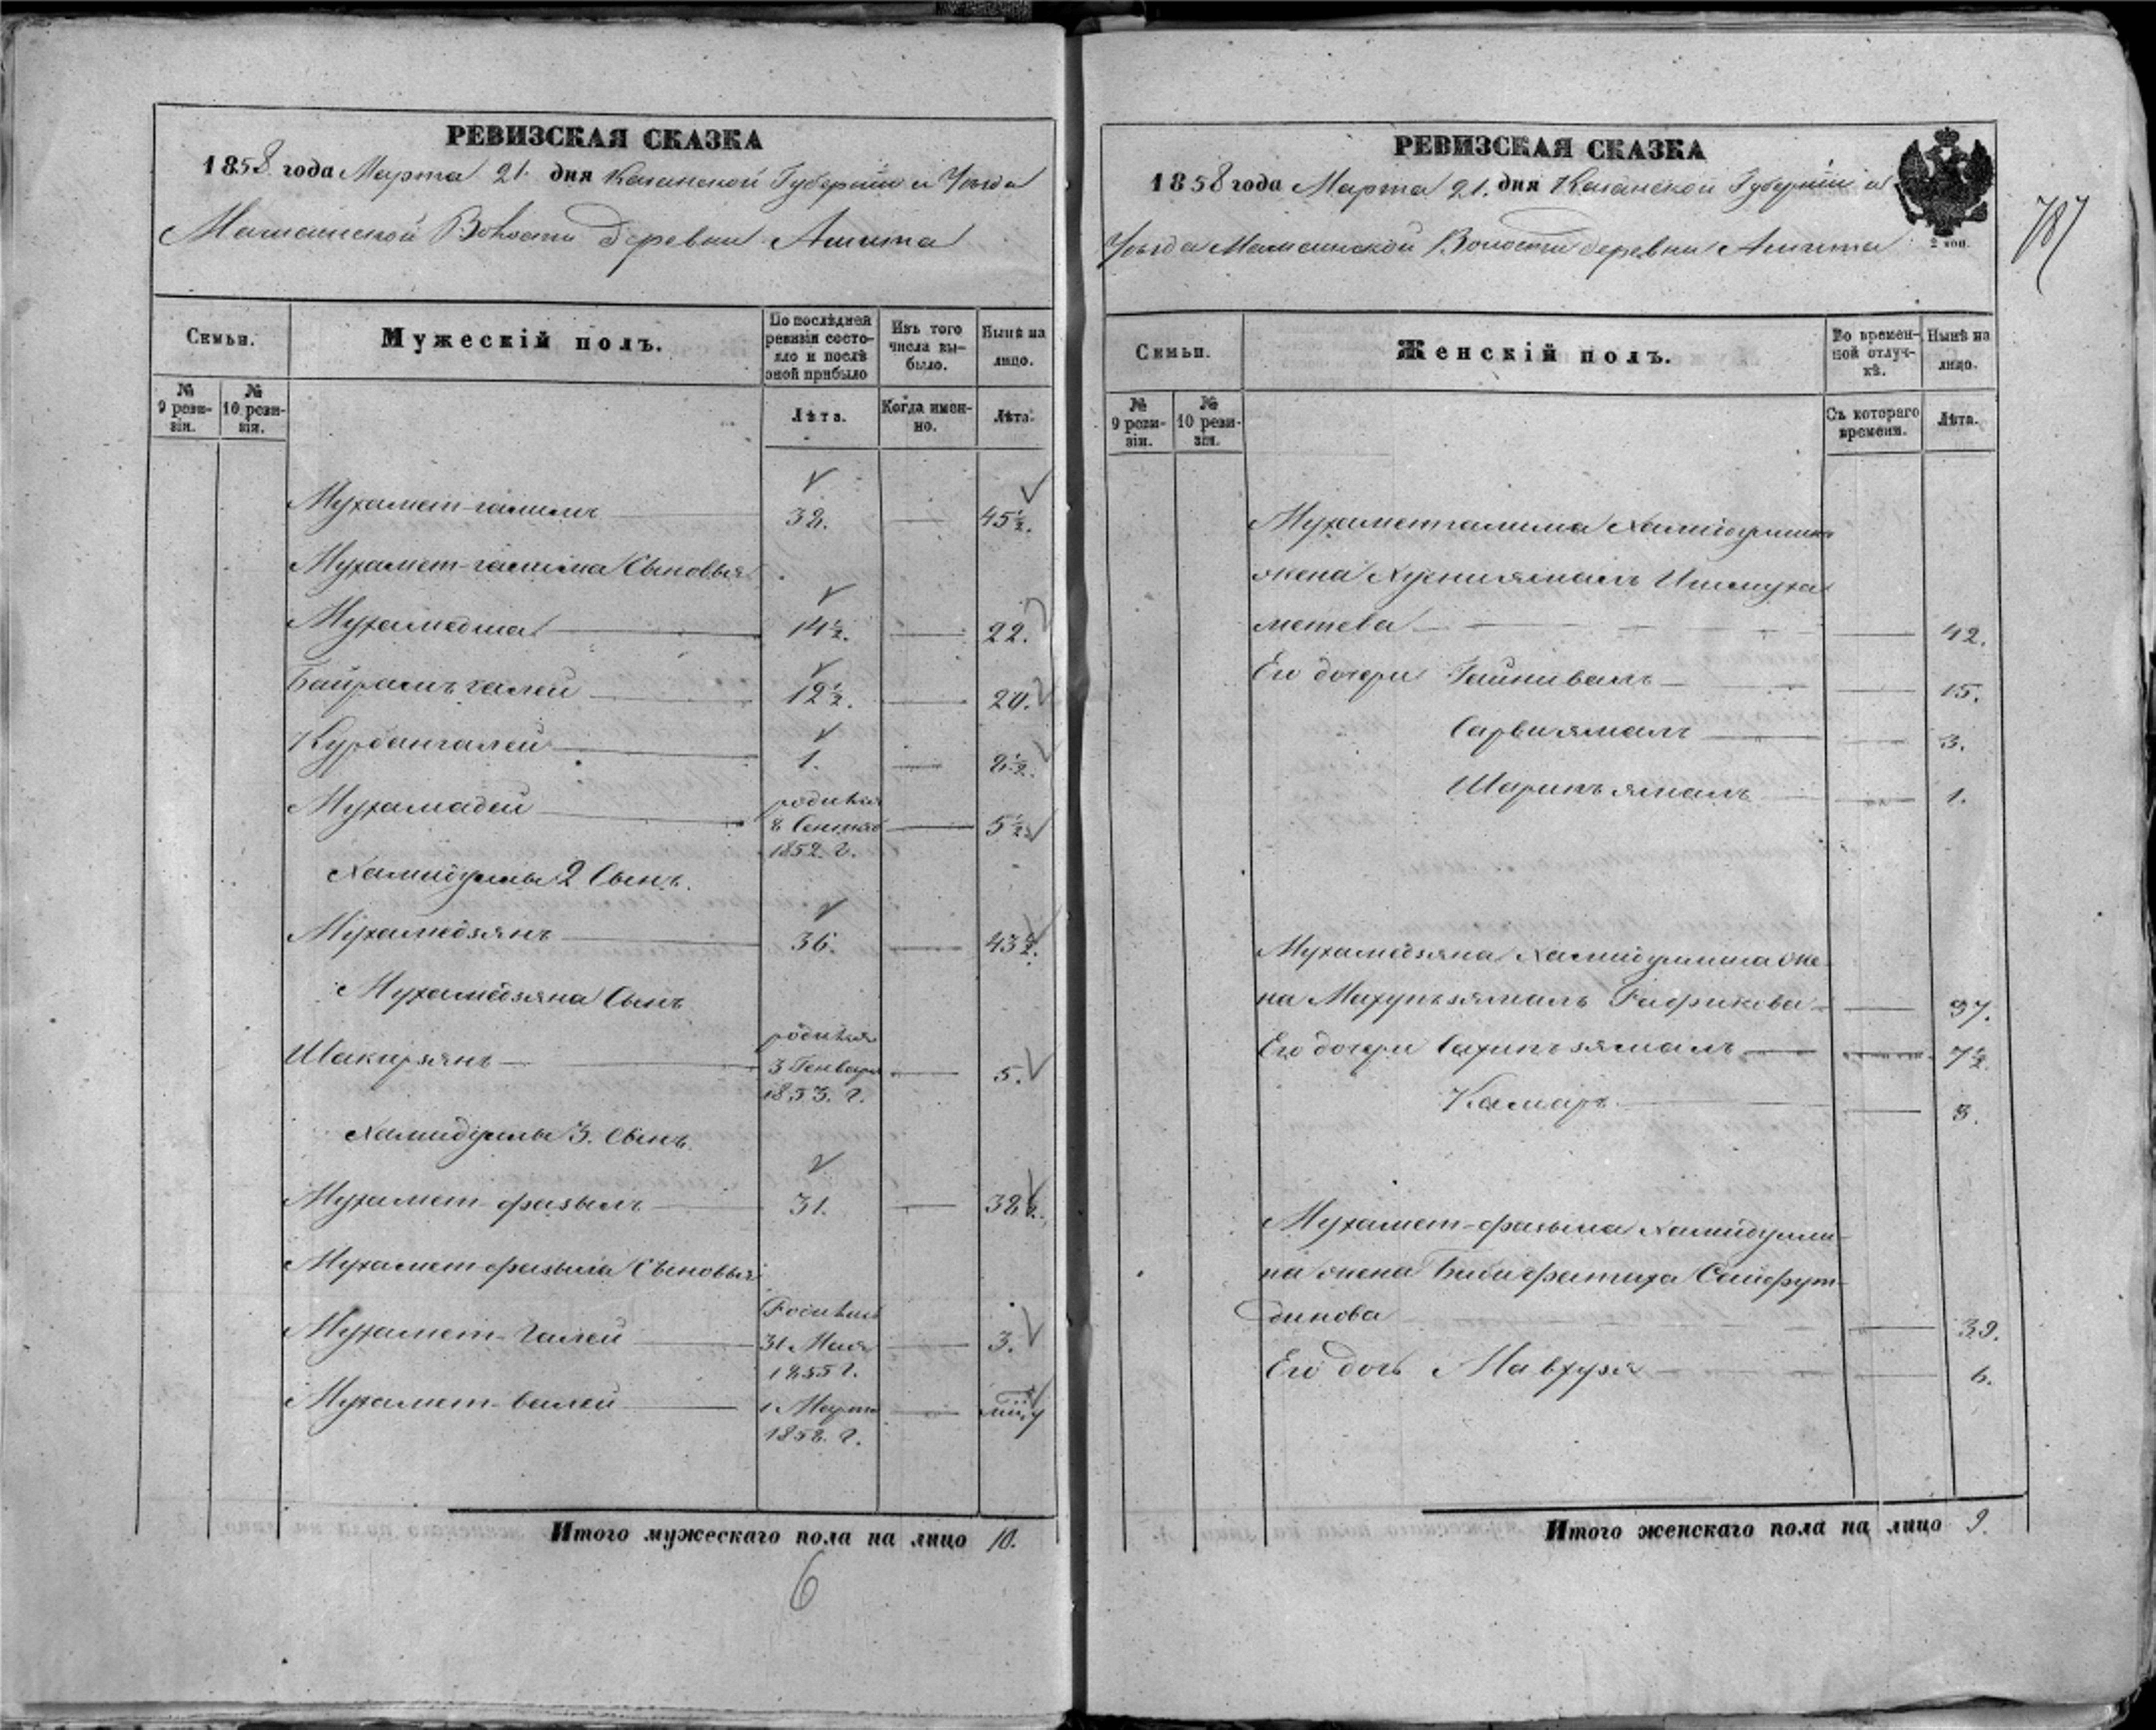 РЕВИЗСКАЯ СКАЗКА
1858 года Марта 21. дня Казанской Губернии и Уѣзда
Мамсинской Волости деревни Ашита
Семьи.
Мужескій полъ.
По послѣдней ревизіи состояло и послѣ оной прибыло
Изъ того числа выбыло.
Нынѣ на лицо.
№ 9 ревизіи.
№ 10 ревизія.
Лѣта.
Когда именно.
Лѣта.
Мухамет-галимъ 38. 45½.
Мухамет-галима Сыновья
Мухамедша 14½. 22.
Байрамъ галей 12½. 20.
Курбангалей 1. 8½.
Мухамадей родился 8 Сентяб 1852. г. 5½
Хамидуллы 2 Сынъ.
Мухамедзянъ 36. 43½.
Мухамедзяна Сынъ
Шакирзянъ родился 3 Генваря 1853. г. 5.
Хамидуллы 3. Сынъ
Мухамет-фазылъ 31. 38½.
Мухамет-фазыла Сыновья
Мухамет-Галей Родились 31 Мая 1855 г. 3.
Мухамет-валей 1 Марта 1858. г.
Итого мужескаго пола на лицо 10.
6
РЕВИЗСКАЯ СКАЗКА
1858 года Марта 21. дня Казанской Губерніи и
Уѣзда Мамсинской Волости деревни Ашита
2 коп.
787
Семьи.
Женскій полъ.
Во временной отлучкѣ.
Нынѣ на лицо.
№ 9 ревизіи.
№ 10 ревизіи.
Съ котораго времени.
Лѣта.
Мухаметгалима Хамидуллина
жена Хусниямалъ Ишмуха
метева 42.
Его дочери Гайнивалъ 15.
Сарвиямалъ 3.
Шарипъ ямалъ 1.
Мухамедзяна Хамидуллина же
на Махупъзямалъ Рафикова 37.
Его дочери Сахипъ зямалъ 7½.
Камаръ 3.
Мухамет-фазыла Хамидулли
на жена Бибифатиха Сайфут
динова 39.
Его дочь Мавхузя 6.
Итого женскаго пола на лицо 9.